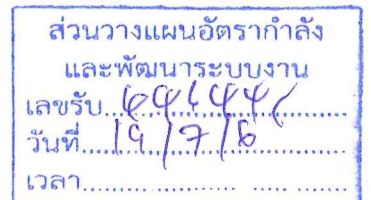 ส่วนวางแผนอัตรากำลัง
และพัฒนาระบบงาน
เลขรับ
วันที่ 19/7/6
เวลา